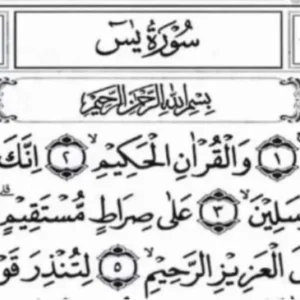 سُورَةُ يٰسٓ
بِسْمِ اللّٰهِ الرَّحْمٰنِ الرَّحِيْمِ
﴿١﴾ وَالْقُرْاٰنِ الْحَكِيْمِۙ ﴿٢﴾ اِنَّكَ
سَلِيْنَۙ ﴿٣﴾ عَلٰى صِرَاطٍ مُّسْتَقِيْمٍۗ
الْعَزِيْزِ الرَّحِيْمِۙ ﴿٥﴾ لِتُنْذِرَ قَوْ